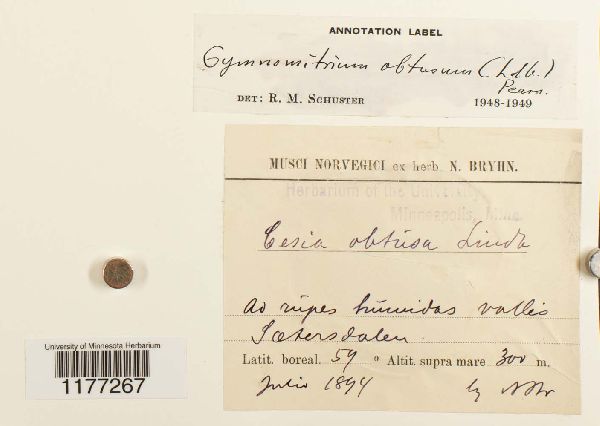 ANNOTATION LABEL
Gymnomitrium obtusum (Ldb.)
Pears.
DET: R. M. SCHUSTER 1948-1949
MUSCI NORVEGICI ex herb. N. BRYHN.
Herbarium of the University
Minneapolis, Minn.
Cesia obtusa Lindb
Ad rupes humidas vallis
Sætersdalen.
Latit. boreal. 59 ° Altit. supra mare 300 m.
Julio 1894
University of Minnesota Herbarium
1177267